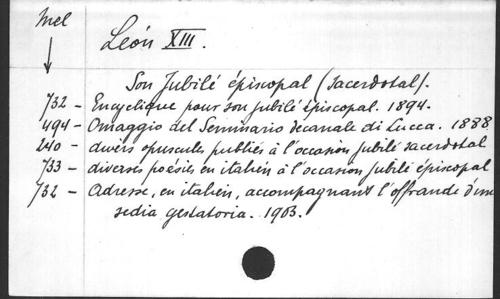 Mel
León XIII.
Son Jubilé épiscopal (sacerdotal).
732 - Encyclique pour son jubilé épiscopal. 1894.
494 - Omaggio del Seminario decanale di Lucca. 1888
240 - divers opuscules publiés à l'occasion jubilé sacerdotal
733 - diverses poésies en italien à l'occasion jubilé épiscopal
732 - Adresse, en italien, accompagnant l'offrande d'une
sedia gestatoria. 1903.